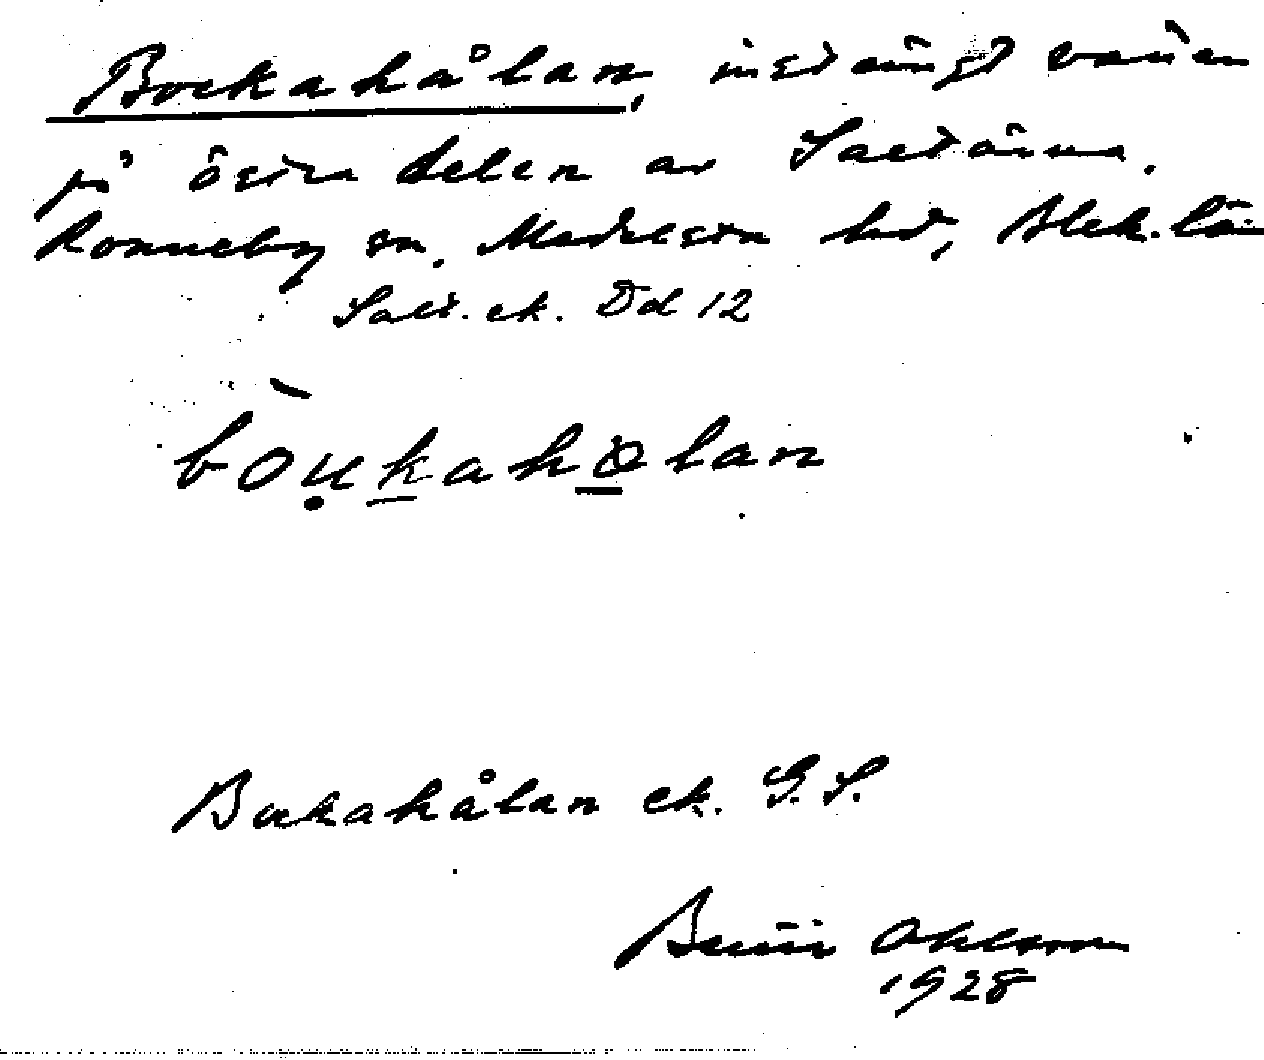 Bockahålan, instängt vatten
på östra delen av Saltärna.
Ronneby sn, Medelsta hd, Blek. län
Salt. ek. Dd 12
boukahålan
Bockahålan ek. G.S.
Bengt Ohlsson
1928